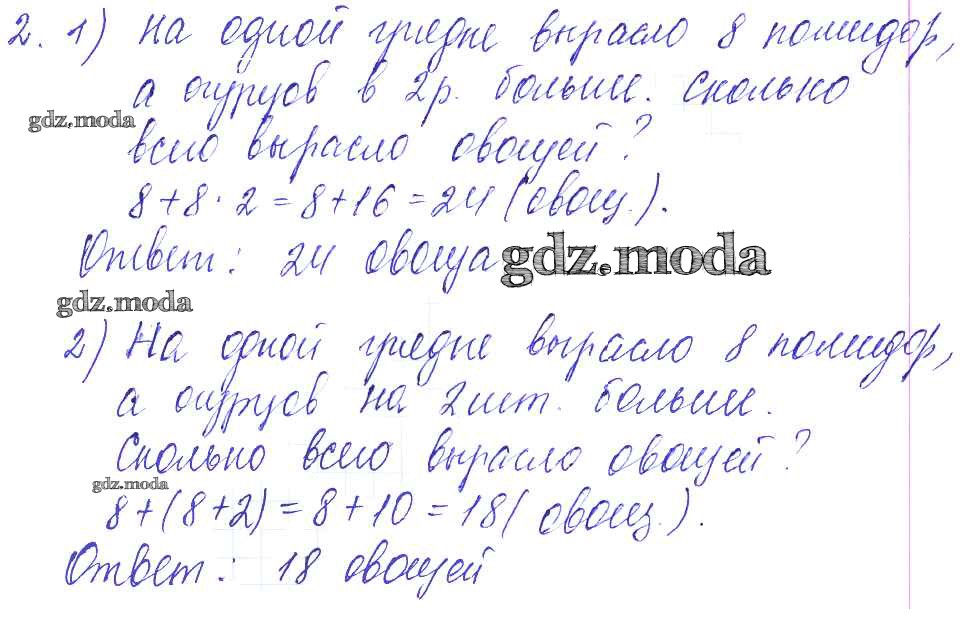 2. 1) На одной грядке выросло 8 помидор,
а огурцов в 2 р. больше. Сколько
gdz.moda
всего выросло овощей?
8+8·2=8+16=24 (овощ.).
Ответ: 24 овоща
gdz.moda
gdz.moda
2) На одной грядке выросло 8 помидор,
а огурцов на 2 шт. больше.
Сколько всего выросло овощей?
gdz.moda
8+(8+2)=8+10=18 (овощ.).
Ответ: 18 овощей